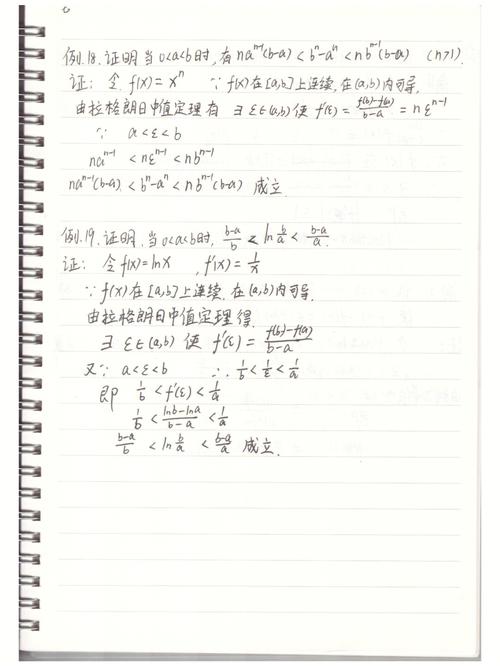 例.18.证明当0<a<b时,有naⁿ⁻¹(b-a)<bⁿ-aⁿ<nbⁿ⁻¹(b-a) (n>1).
证: 令 f(x)=xⁿ ∵ f(x)在[a,b]上连续,在(a,b)内可导,
由拉格朗日中值定理有 ∃ ξ∈(a,b)使 f'(ξ)=\frac{f(b)-f(a)}{b-a}=nξⁿ⁻¹
∵ a<ξ<b
naⁿ⁻¹<nξⁿ⁻¹<nbⁿ⁻¹
naⁿ⁻¹(b-a)<bⁿ-aⁿ<nbⁿ⁻¹(b-a) 成立.
例.19.证明,当0<a<b时, \frac{b-a}{b}<ln\frac{b}{a}<\frac{b-a}{a}.
证: 令f(x)=lnx ,f'(x)=\frac{1}{x}
∵f(x)在[a,b]上连续.在(a,b)内可导.
由拉格朗日中值定理得.
∃ ξ∈(a,b) 使 f'(ξ)=\frac{f(b)-f(a)}{b-a}
又∵ a<ξ<b ∴\frac{1}{b}<\frac{1}{ξ}<\frac{1}{a}
即 \frac{1}{b}<f'(ξ)<\frac{1}{a}
\frac{1}{b}<\frac{lnb-lna}{b-a}<\frac{1}{a}
\frac{b-a}{b}<ln\frac{b}{a}<\frac{b-a}{a} 成立.